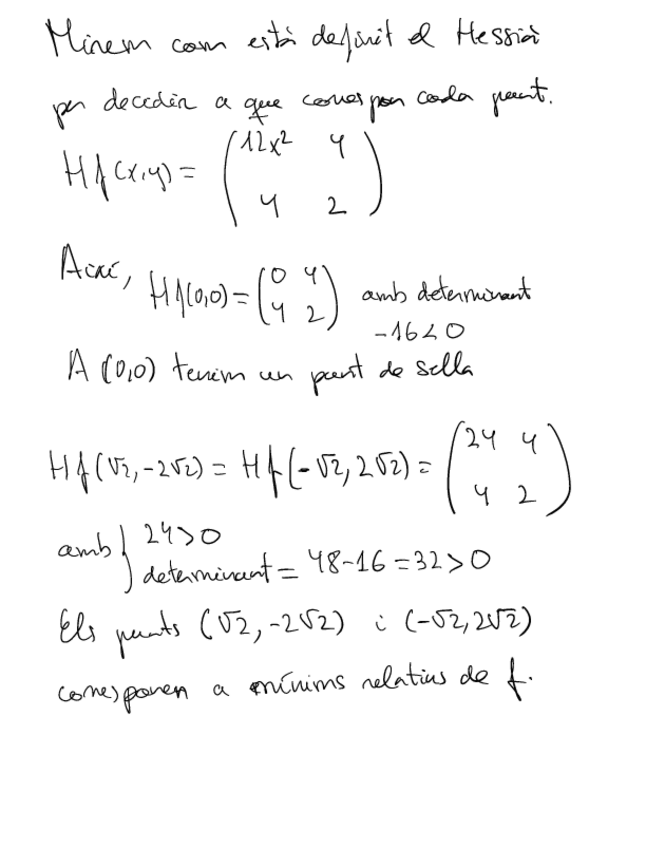 Mirem com està definit el Hessià
per decidir a que correspon cada punt.
Hf(x,y) = (12x² 4
4 2)
Així, Hf(0,0) = (0 4
4 2) amb determinant
-16<0
A (0,0) tenim un punt de sella
Hf(√2,-2√2) = Hf(-√2,2√2) = (24 4
4 2)
amb } 24>0
determinant = 48-16=32>0
Els punts (√2,-2√2) i (-√2,2√2)
corresponen a mínims relatius de f.